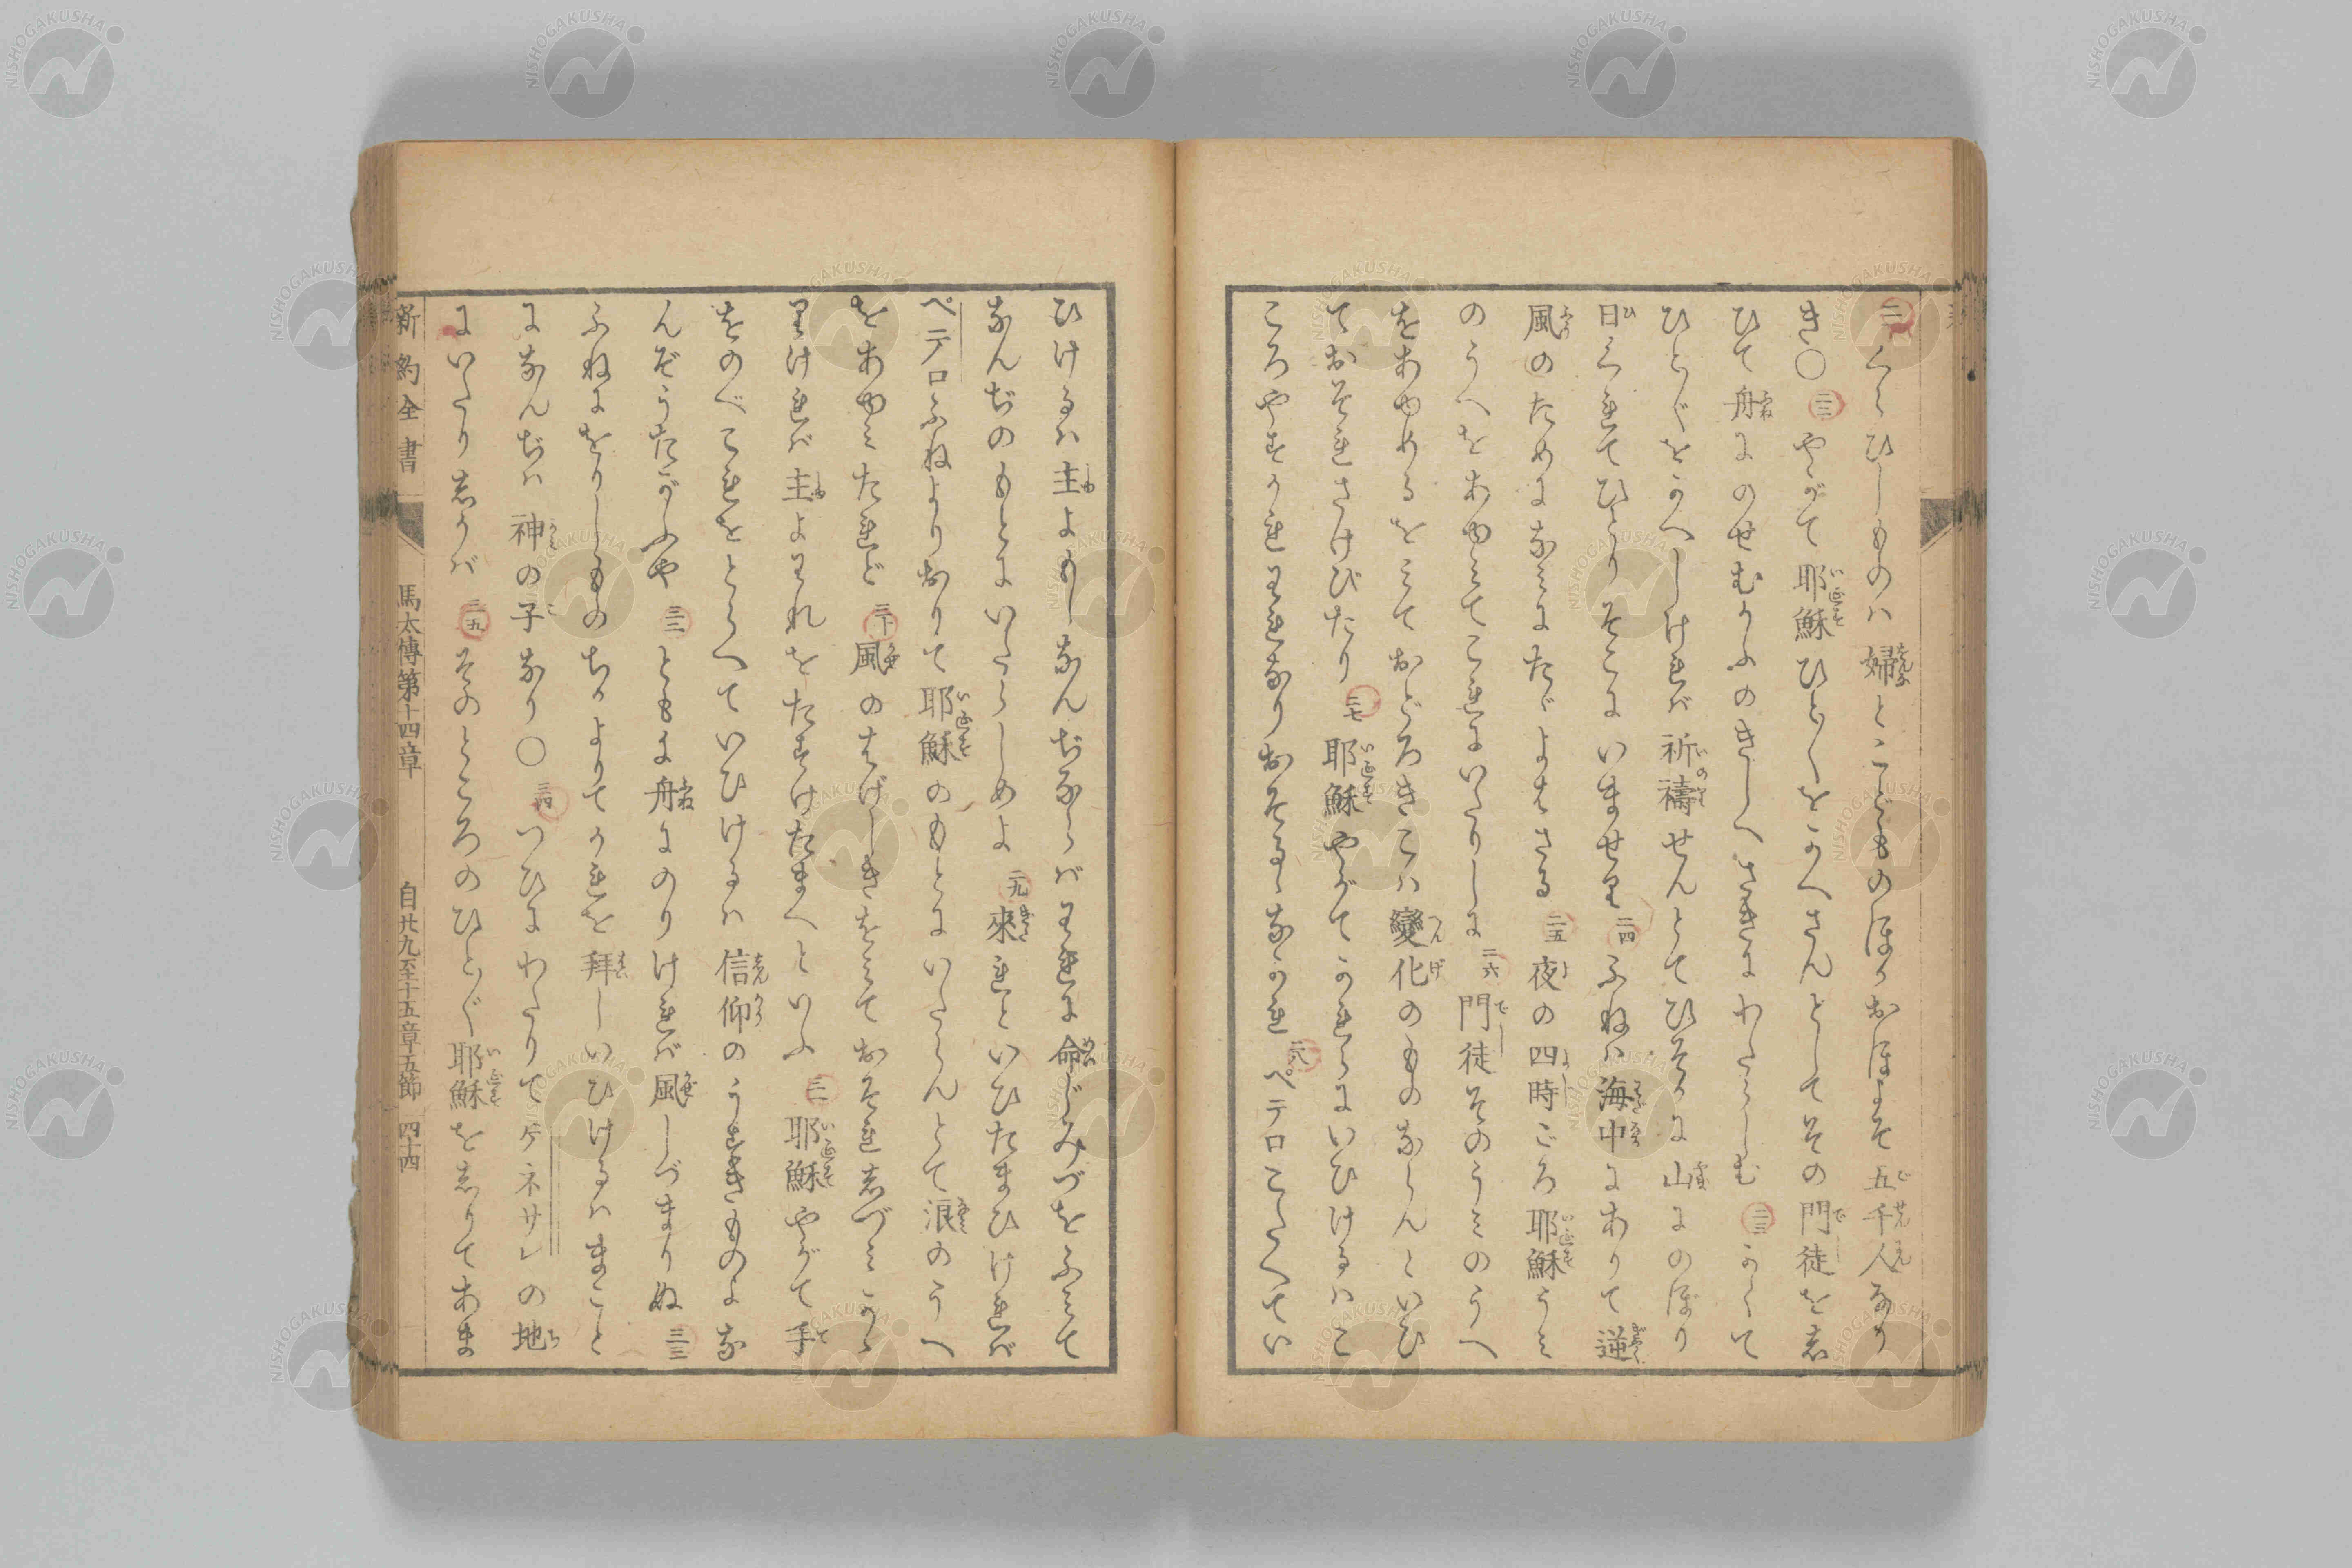 二一くらひしものハ婦とこどものほかおほよそ五千人なり
き〇二二やがて耶穌ひと〲をかへさんとしてその門徒を志
ひて舟にのせむかふのきしへさきにわたらしむ二三かくて
ひと〲をかへしけれバ祈禱せんとてひそかに山にのぼり
日くれてひとりそこにいませり二四ふねハ海中にありて逆
風のためになみにたゞよはさる二五夜の四時ごろ耶穌うミ
のうへをあゆミてこれにいたりしに二六門徒そのうミのうへ
をあゆめるをミておどろきこハ變化のものならんといひ
ておそれさけびたり二七耶穌やがてかれらにいひけるハこ
ころやすかれわれなりおそるゝなかれ二八ペテロこたへてい
ひけるハ主よもしなんぢならバわれに命じみづをふミて
なんぢのもとにいたらしめよ二九來れといひたまひけれバ
ペテロふねよりおりて耶穌のもとにいたらんとて浪のうへ
をあゆミたれど三十風のはげしきをミておそれ志づミかゝ
りけれバ主よわれをたすけたまへといふ三一耶穌やがて手
をのべこれをとらへていひけるハ信仰のうすきものよな
んぞうたがふや三二ともに舟にのりけれバ風しづまりぬ三三
ふねにをりしもの ちかよりてかれを拜しいひけるハまこと
になんぢハ神の子なり〇三四つひにわたりてゲネサレの地
にいたり志かバ三五そのところのひと〲耶穌を志りてあま
新約全書 馬太傳第十四章 自廿九至十五章五節 四十四
NISHOGAKUSHA